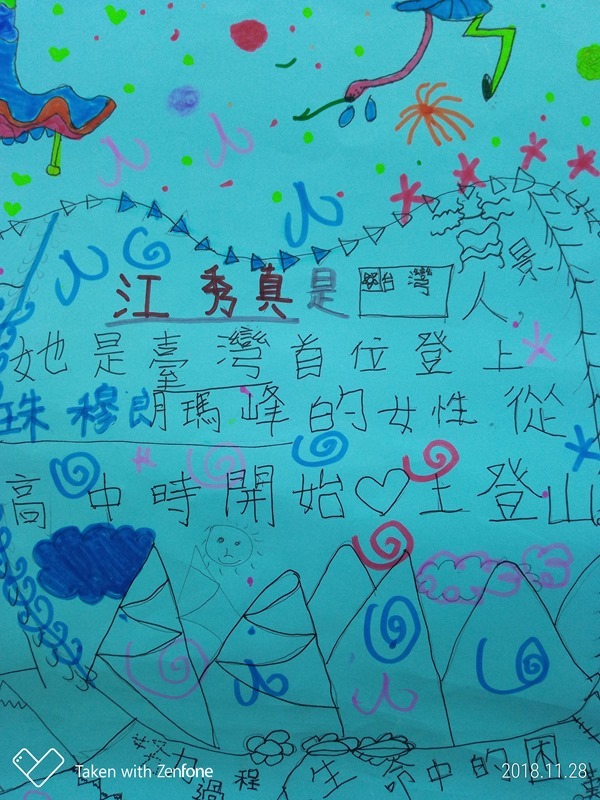 江秀真是台灣人
她是臺灣首位登上
珠穆朗瑪峰的女性從
高中時開始♡上登山
過程 生命中的困
Taken with Zenfone 2018.11.28